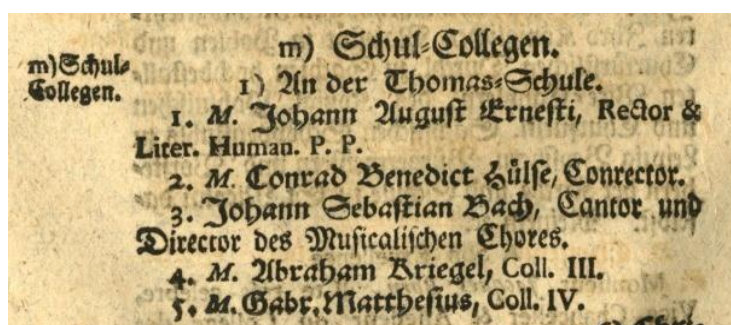 m) Schul-Collegen.
m) Schul-
Collegen.
1) An der Thomas-Schule.
1. M. Johann August Ernesti, Rector &
Liter. Human. P. P.
2. M. Conrad Benedict Hülse, Conrector.
3. Johann Sebastian Bach, Cantor und
Director des Musicalischen Chores.
4. M. Abraham Kriegel, Coll. III.
5. M. Gabr. Matthesius, Coll. IV.